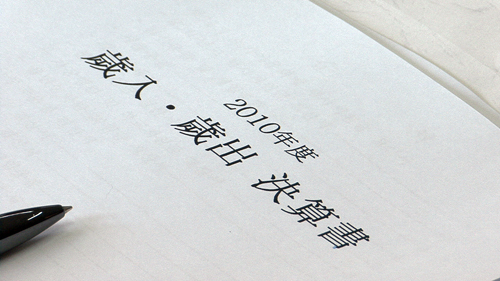 2010年度
歳入・歳出 決算書